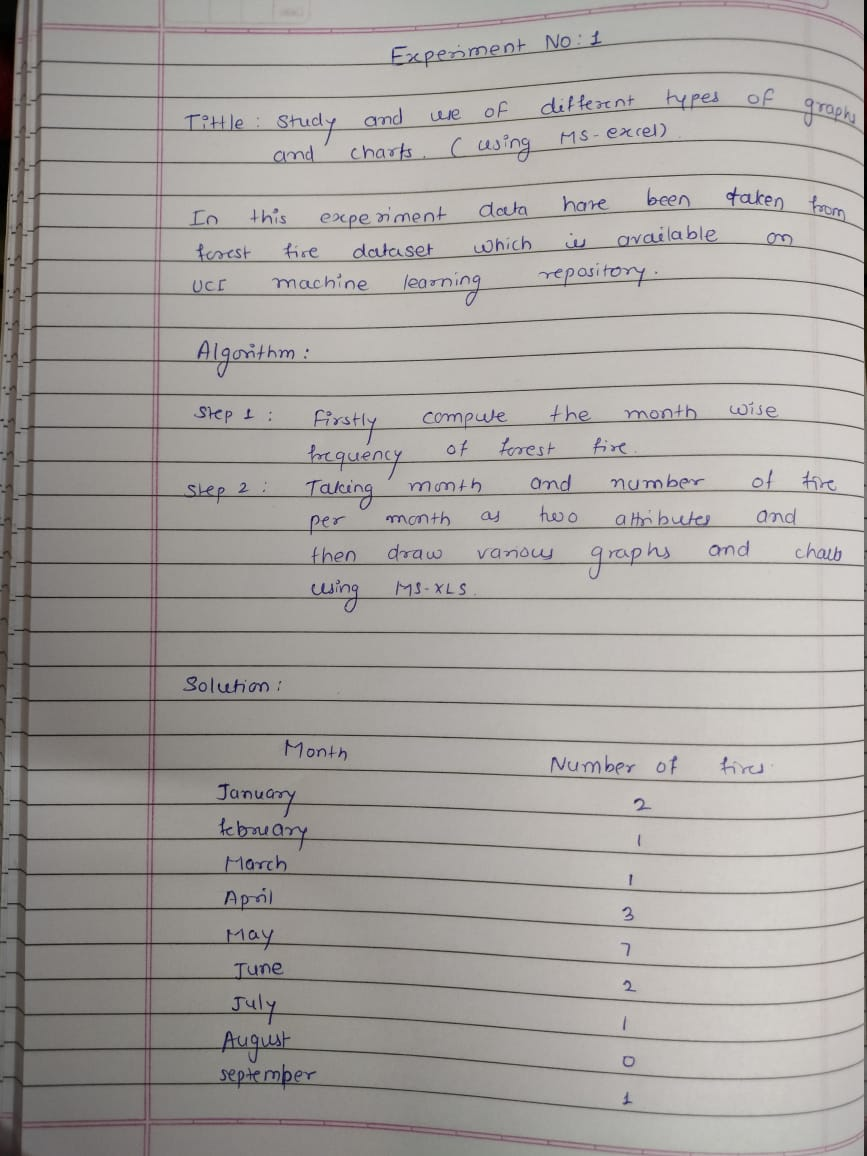 Experiment No: 1
Tittle: Study and use of different types of graphs
and charts. (using MS-excel)
In this experiment data have been taken from
forest fire dataset which is available on
UCI machine learning repository.
Algorithm:
Step 1: Firstly compute the month wise
frequency of forest fire.
Step 2: Taking month and number of fire
per month as two attributes and
then draw various graphs and charts
using MS-XLS.
Solution:
Month Number of fires.
January 2
february 1
March 1
April 3
May 7
June 2
July 1
August 0
september 1